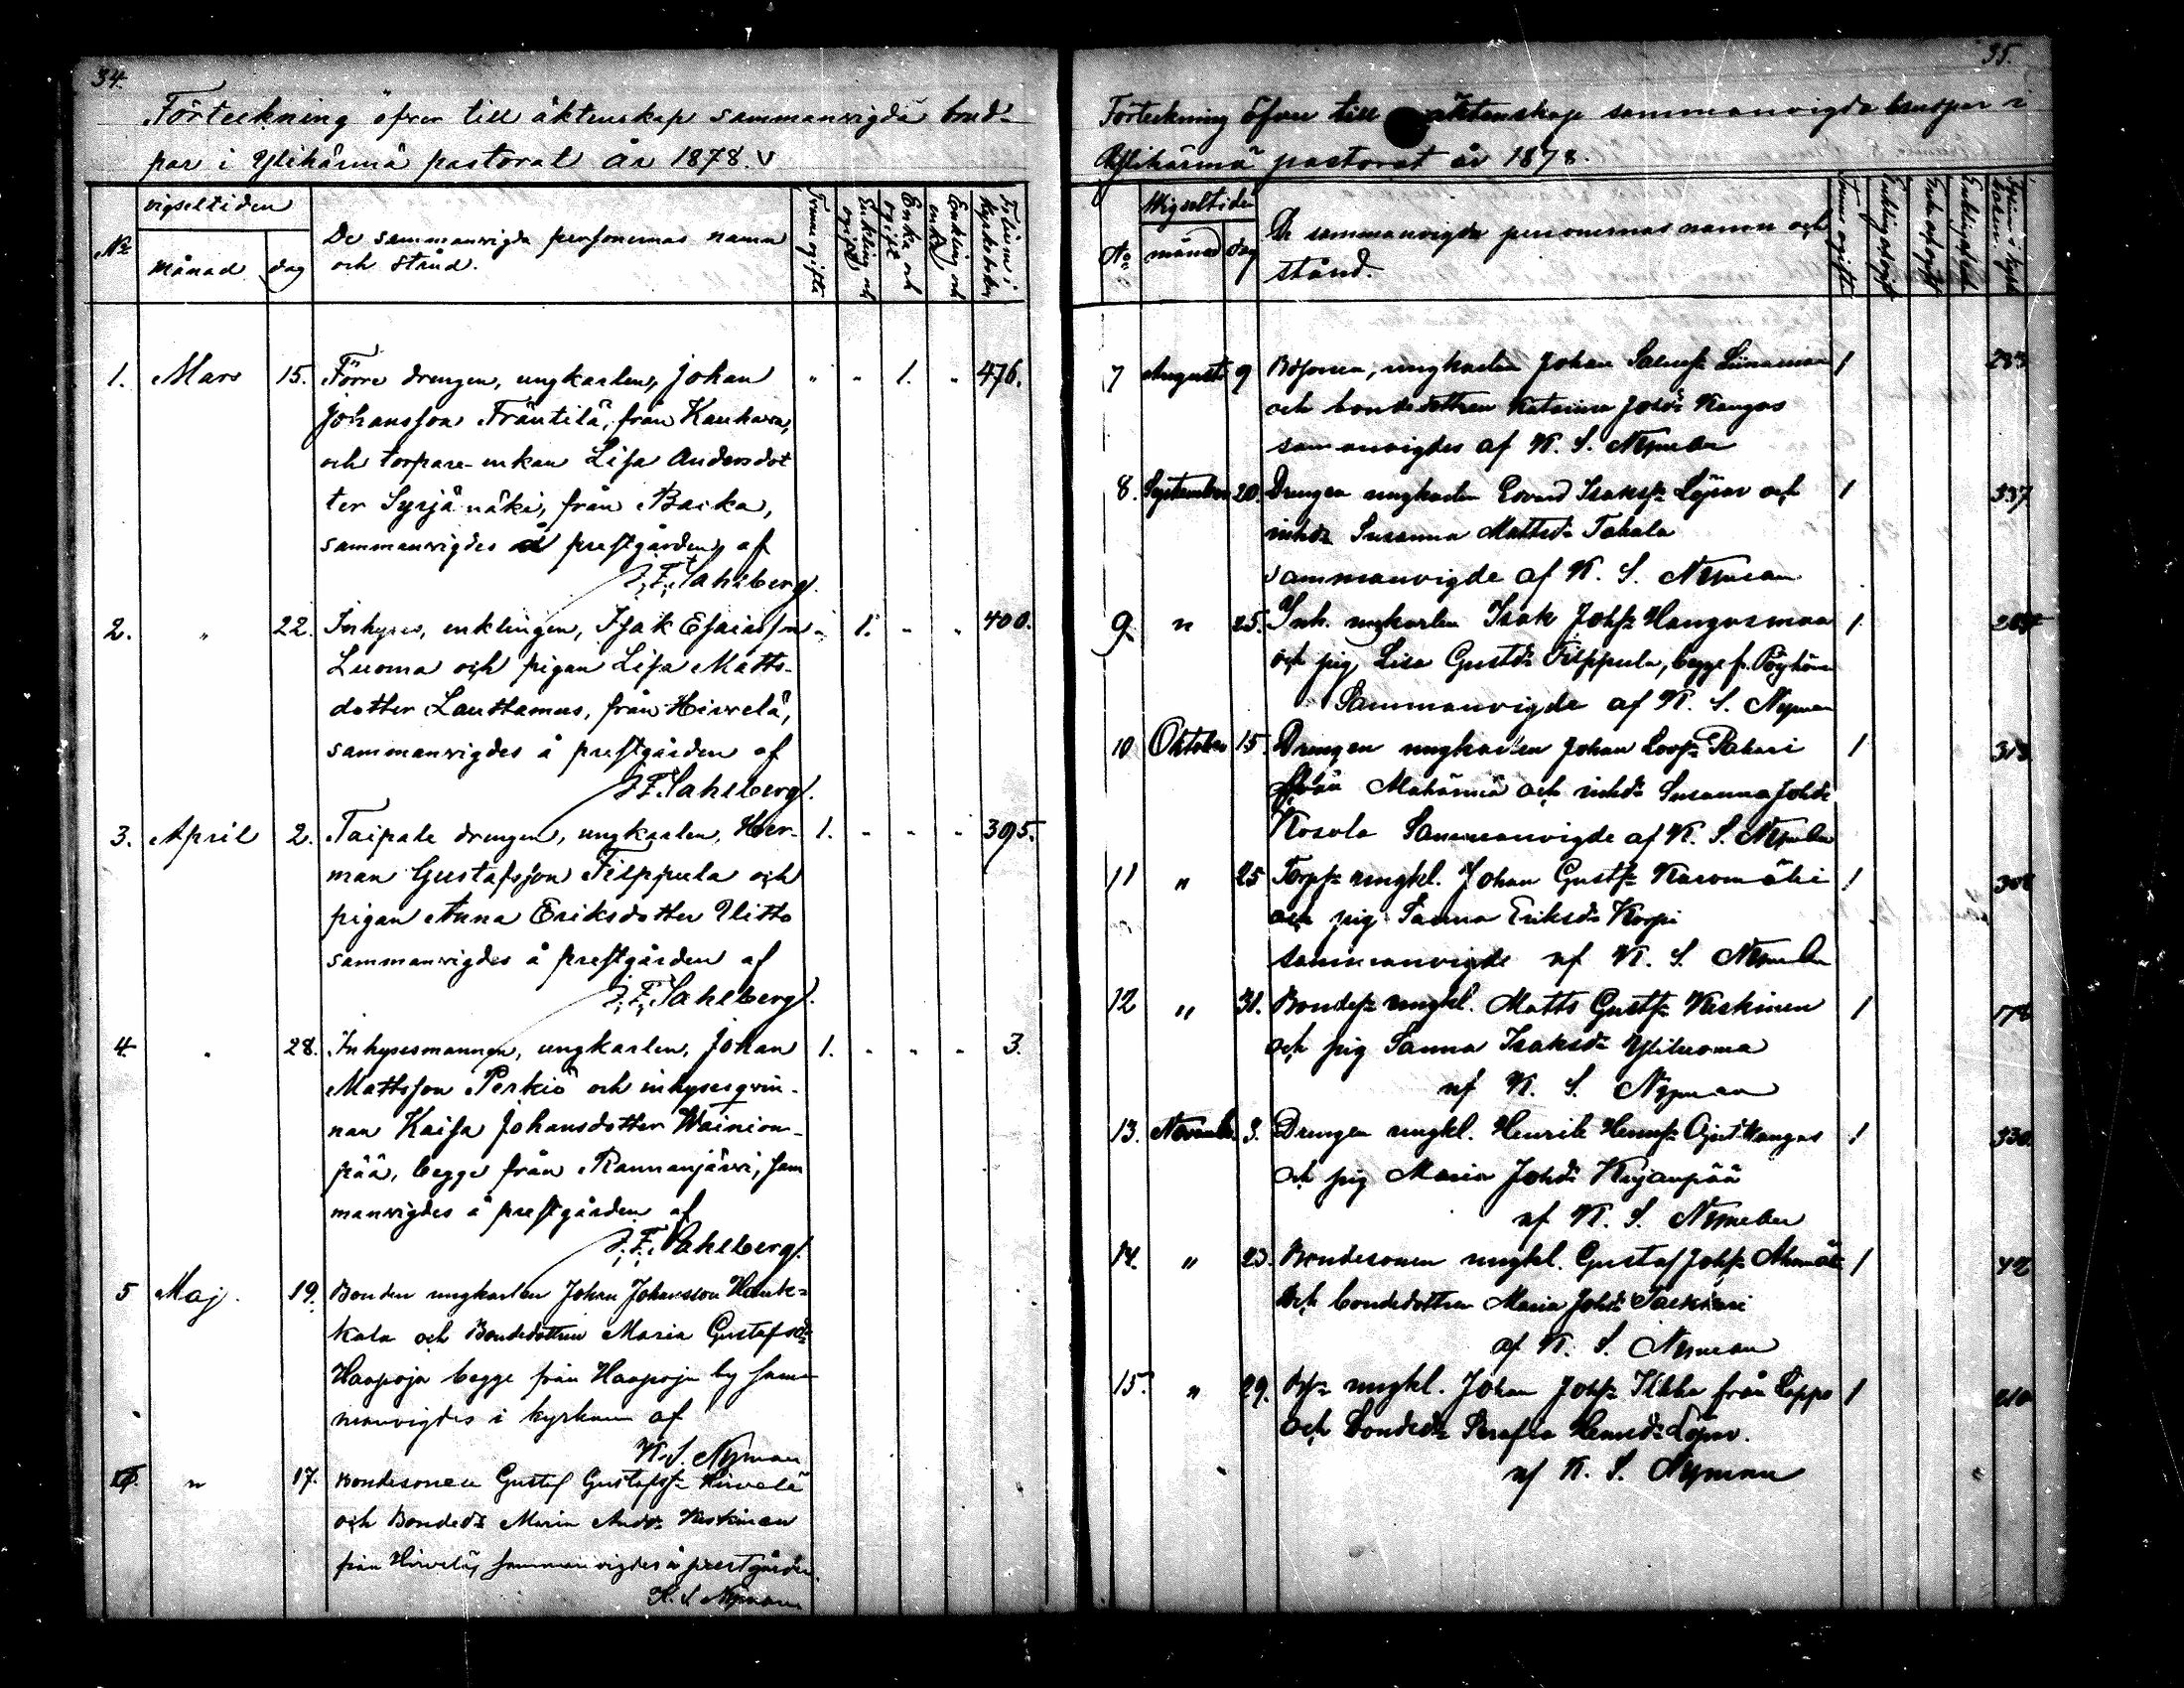 34.
Förteckning öfver till äktenskap sammanvigda brud-
par i Ylihärmä pastorat År 1878.
No
vigseltiden
månad
dag
De sammanvigda personernas namn
och stånd.
Tvenne ogifta
Enkling och
ogift
Enka och
ogift
Enkling och
enka
Folium i
kyrkoboken
1. Mars 15. Förre drengen, ungkarlen, Johan " " 1. " 476.
Johansson Träntilä, från Kauhava,
och torpare-enkan Lisa Andersdot
ter Syrjämäki, från
sammanvigdes å prestgården, af
J. F. Sahlberg.
2. " 22. Inhyses, enklingen, Isak Esaiasson " 1. " " 400.
Luoma och pigan Lisa Matts-
dotter Lauttamus, från Hirvelä,
sammanvigdes å prestgården af
J. F. Sahlberg.
3. April 2. Taipale drengen, ungkarlen, Her- 1. " " " 395.
man Gustafsson Filppula och
pigan Anna Eriksdotter Ylitto
sammanvigdes å prestgården af
J. F. Sahlberg.
4. " 28. Inhysesmannen, ungkarlen, Johan 1. " " " 3.
Mattsson Perkiö och inhysesqvin-
nan Kaisa Johansdotter Wainion-
pää, begge från Rannanjärvi, sam
manvigdes å prestgården af
J. F. Sahlberg.
5 Maj. 19. Bonden ungkarlen Johan Johansson
och Bondedottren Maria Gustafsd:
Haapoja begge från Haapoja by sam-
manvigdes i kyrkan af
K. S. Nyman
" 17. Bondesonen Gustaf Gustafss: Hirvelä
och Bonded: Maria Andd: Keskinen
från Hirvelä, sammanvigdes å prestgården.
K. S. Nyman
35.
Förteckning öfver till äktenskap sammanvigda brudpar i
Ylihärmä pastorat år 1878.
No
Wigseltiden
månad
dag
De sammanvigda personernas namn och
stånd.
7 Augusti 9 ungkarlen Johan 1 283
och bondedottren Katarina Johd: Kangas
sammanvigdes af K. S. Nyman
8. September 20. Drengen ungkarlen Edvard Isakss: och 1 337
inhd: Susanna Mattsd: Takala
sammanvigde af K. S. Nyman
9. " 25. Inh. ungkarlen Isak Johss: Hangasmaa 1
och pig. Lisa Gustd: Filppula, begge fr. Pöyhönen
Sammanvigde af K. S. Nyman
10 Oktober 15. Drengen ungkarlen Johan 1 313
från Alahärmä och inhd: Susanna Johd:
Kosola Sammanvigde af K. S. Nyman
11 " 25 Torps: ungkl. Johan Gustss: 1
och pig. Sanna Eriksd: Korpi
sammanvigde af K. S. Nyman
12 " 31. Bondes: ungkl. Matts Gustss: Keskinen 1
och pig. Sanna Isaksd: Yliluoma
af K. S. Nyman
13. November 3. Drengen ungkl. Henrik Henrss: 1 330.
och pig Maria Johd: Kujanpää
af K. S. Nyman
14. " 23. Bondesonen ungkl. Gustaf Johss: 1 42
och bondedottren Maria Johd:
af K. S. Nyman
15. " 29. ungkl. Johan Johss: från Lappo 1 210
och Bonded: Serafia Henrsd:
af K. S. Nyman